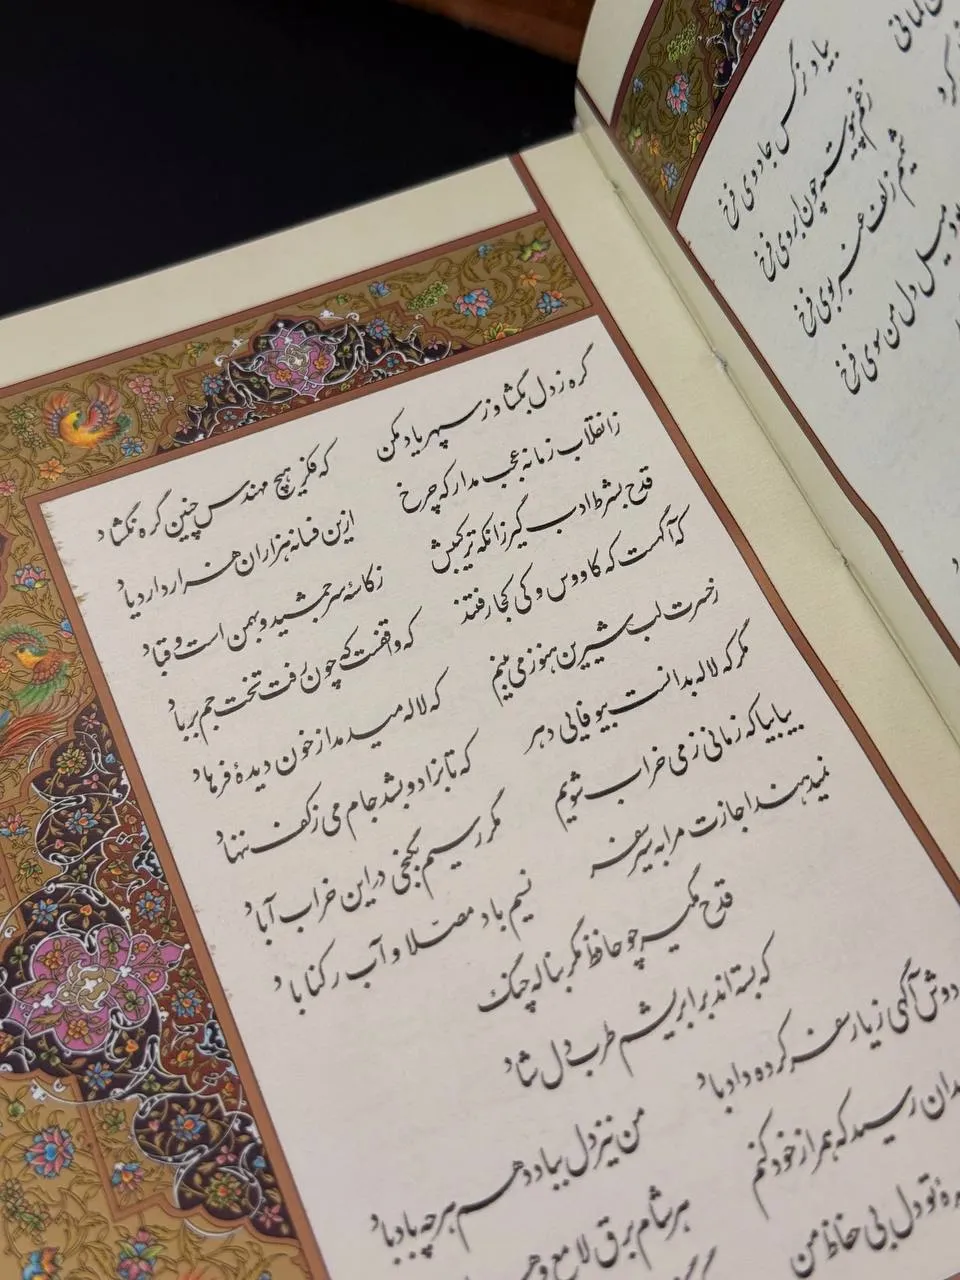 بیاد نرگس جادوی فرخ
زغم پیوسته چون ابروی فرخ
شمیم زلف عنبر بوی فرخ
میل دل من سوی فرخ
گره ز دل بگشا و ز سپهر یاد مکن که فکر هیچ مهندس چنین گره نگشاد
ز انقلاب زمانه عجب مدار که چرخ ازین فسانه هزاران هزار دارد یاد
قدح بشرط ادب گیر زانکه ترکیبش ز کاسهٔ سر جمشید و بهمن است و قباد
که آگهست که کاووس و کی کجا رفتند که واقفست که چون رفت تخت جم بر باد
ز حسرت لب شیرین هنوز می بینم که لاله میدمد از خون دیدهٔ فرهاد
مگر که لاله بدانست بیوفائی دهر که تا بزاد و بشد جام می ز کف ننهاد
بیا بیا که زمانی ز می خراب شویم مگر رسیم بگنجی در این خراب آباد
نمیدهند اجازت مرا به سیر سفر نسیم باد مصلا و آب رکناباد
قدح مگیر چو حافظ مگر بناله چنگ
که بسته اند بر ابریشم طرب دل شاد
دوش آگهی ز یار سفر کرده داد باد من نیز دل بباد دهم هرچه باد باد
رسید که همراز خود کنم هر شام برق لامع و
تو دل بی حفاظ من